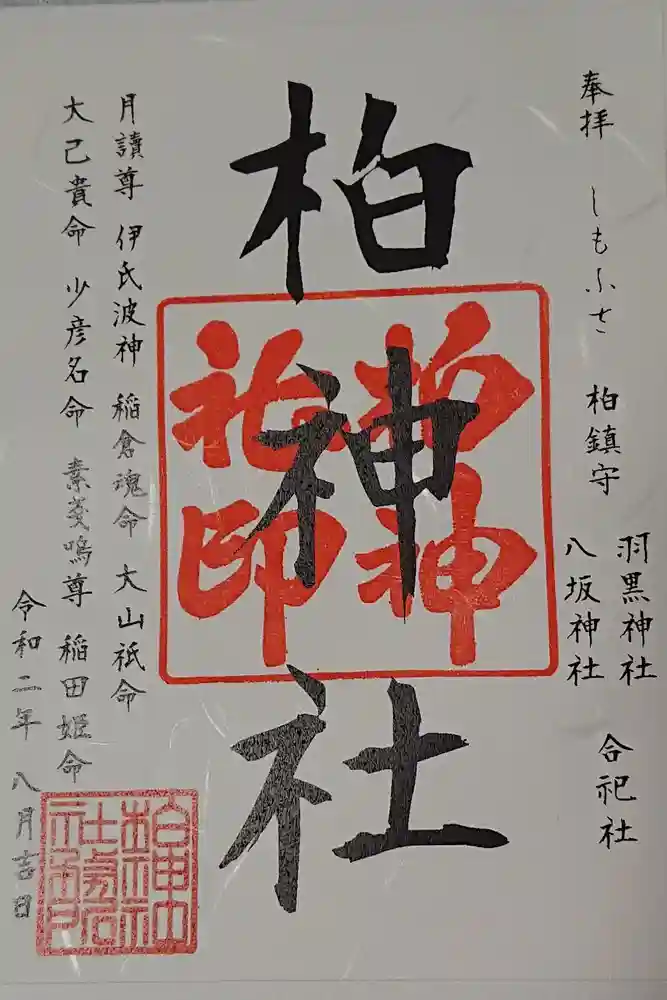 奉拝 しもふさ 柏鎮守
羽黒神社
八坂神社
合祀社
柏神社
柏神
社印
月讀尊 伊氐波神 稲倉魂命 大山祇命
大己貴命 少彦名命 素戔嗚尊 稲田姫命
令和二年 八月吉日
柏神社
社務所